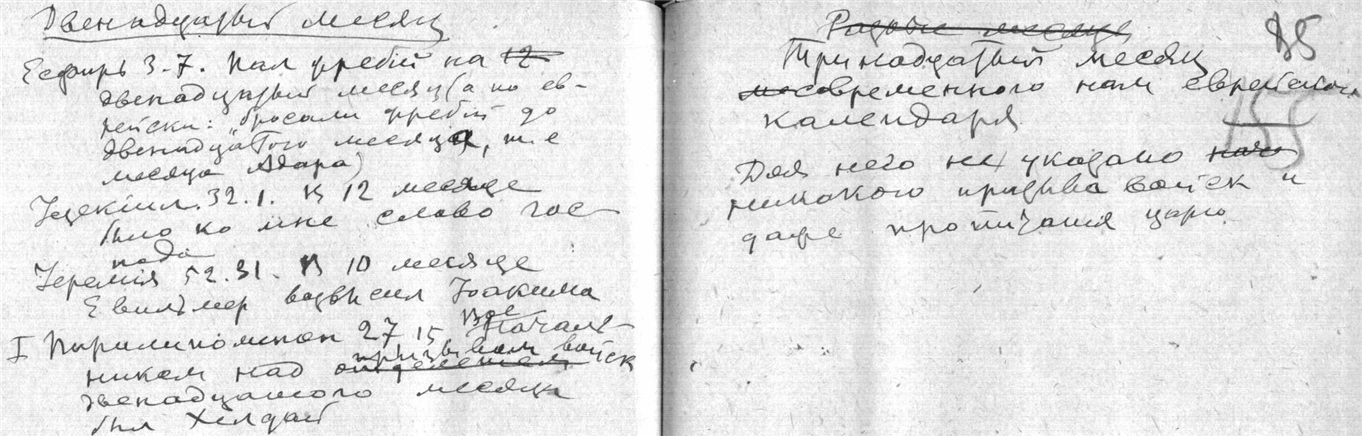 Двенадцатый месяц
Есфирь 3.7. Пал жребий на 12
двенадцатый месяц (а по ев-
рейски: "бросали жребий до
двенадцатого месяца, т.е
месяца Адара)
Иезекіил. 32.1. В 12 месяце
было ко мне слово гос-
пода
Иеремія 52.31. В 10 месяце
Евильмер возвысил Иоакима
I Паралипоменон 27 15 Началь-
ником над призывом войск
двенадцатого месяца
был Хелдай
Разные месяцы
85
Тринадцатый месяц
современного нам еврейского
155
календаря
Для него не указано
никакого призыва войск и
даже пропитания царю